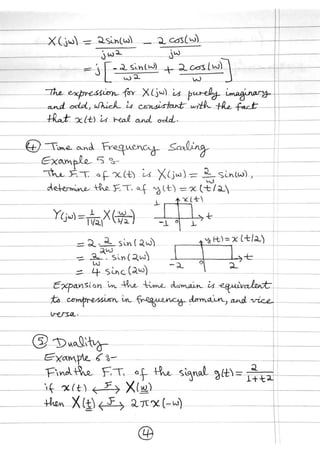 X(jω) = 2sin(ω)/jω2 - 2 cos(ω)/jω
= j [ -2 sin(ω)/ω2 + 2 cos(ω)/ω ]
The expression for X(jω) is purely imaginary
and odd, which is consistant with the fact
that x(t) is real and odd.
④ Time and Frequency Scaling
Example 5 :-
The F.T. of x(t) is X(jω) = 2/ω sin(ω),
determine the F.T. of y(t) = x(t/2)
x(t)
1
Y(jω) = 1/|1/2| X(ω/1/2)
-1 0 1 t
= 2 . 2/2ω sin(2ω)
y(t) = x(t/2)
= 2/ω . sin(2ω)
t
= 4 sinc(2ω)
-2 0 2
Expansion in the time domain is equivalent
to compression in frequency domain, and vice
versa.
⑤ Duality
Example 6 :-
Find the F.T. of the signal g(t) = 2/1+t2
if x(t) <-F-> X(ω)
then X(t) <-F-> 2πx(-ω)
④